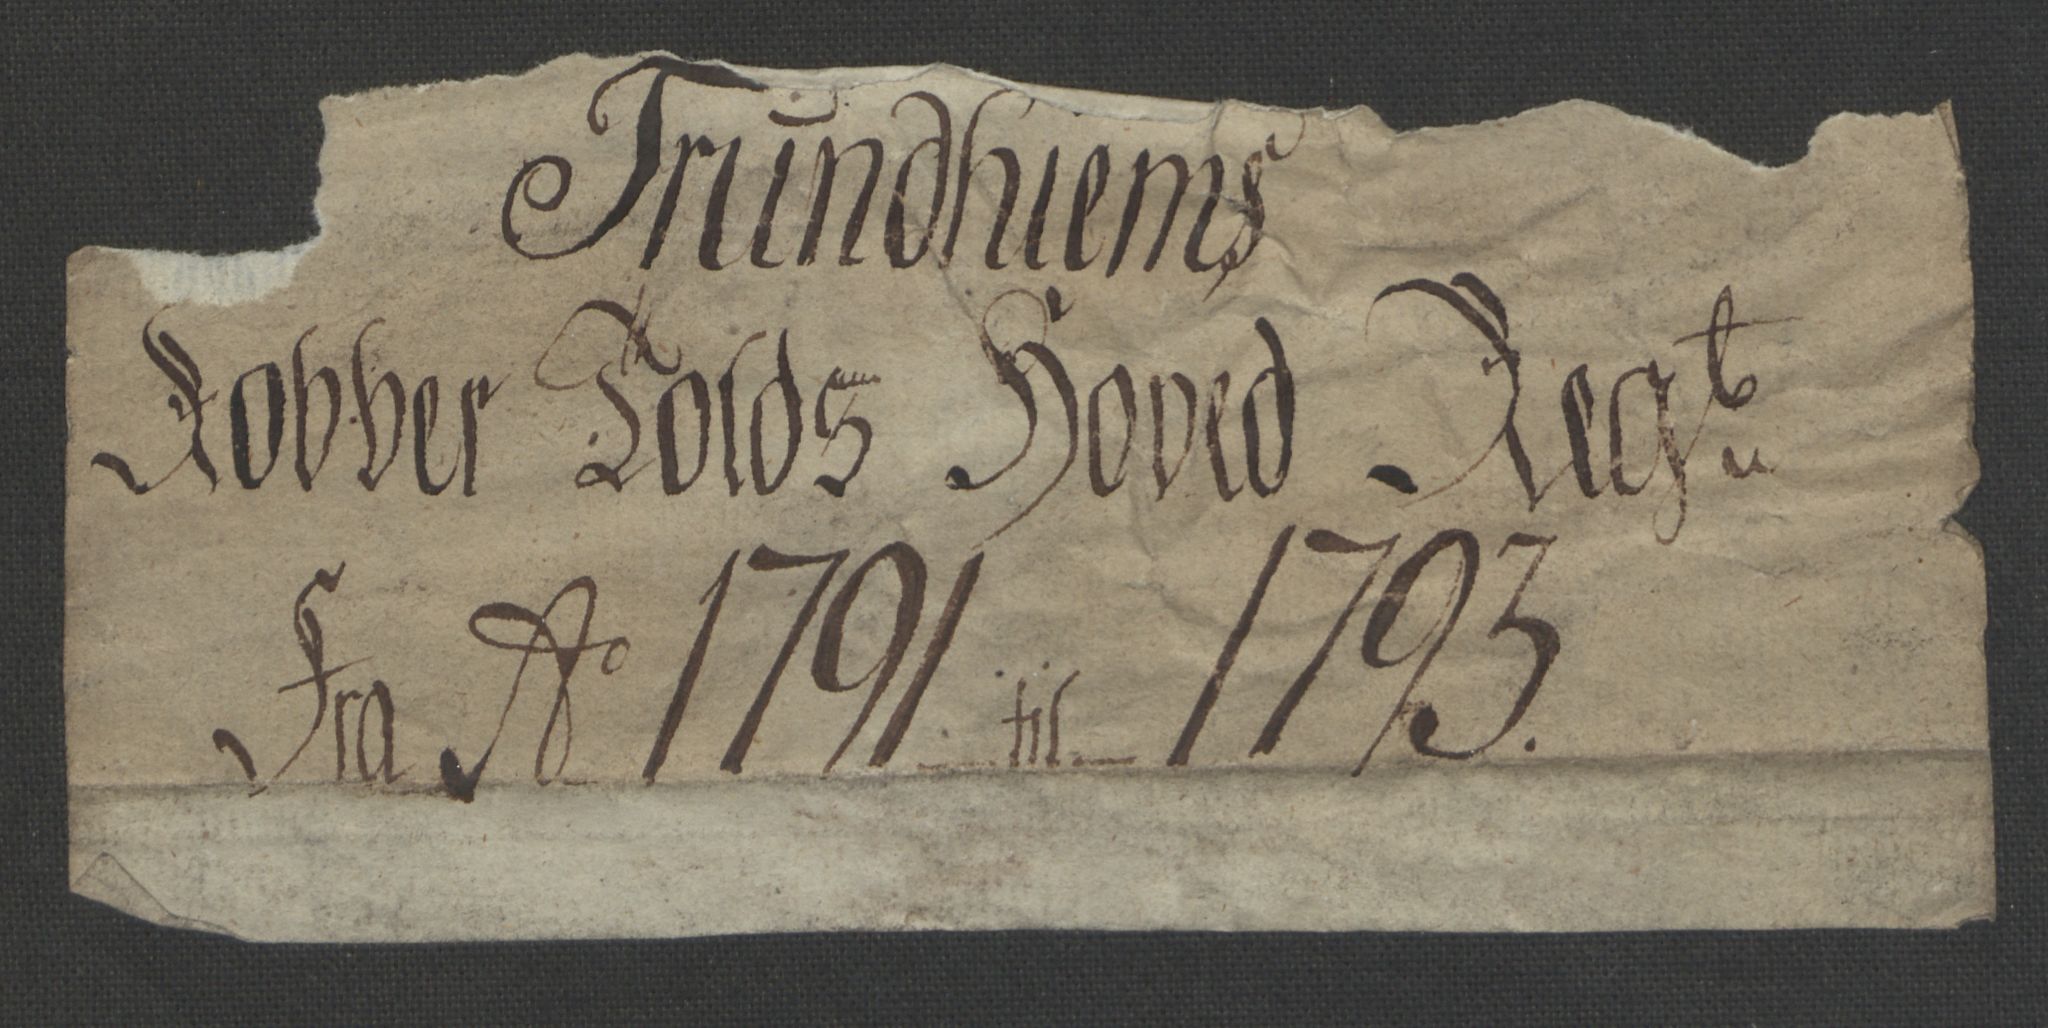 Trundhiems
Kobber Tolds Hoved Regbr
Fra Ao 1791 til 1793.